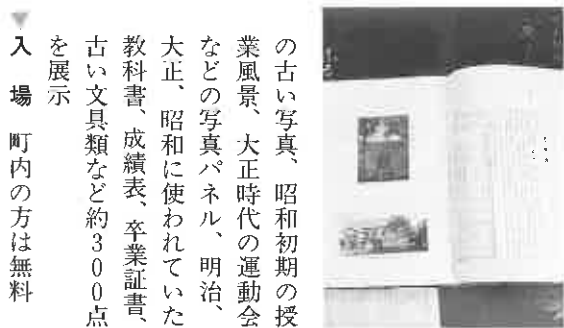 の古い写真、昭和初期の授
業風景、大正時代の運動会
などの写真パネル、明治、
大正、昭和に使われていた
教科書、成績表、卒業証書、
古い文具類など約300点
を展示
▼入　場　町内の方は無料